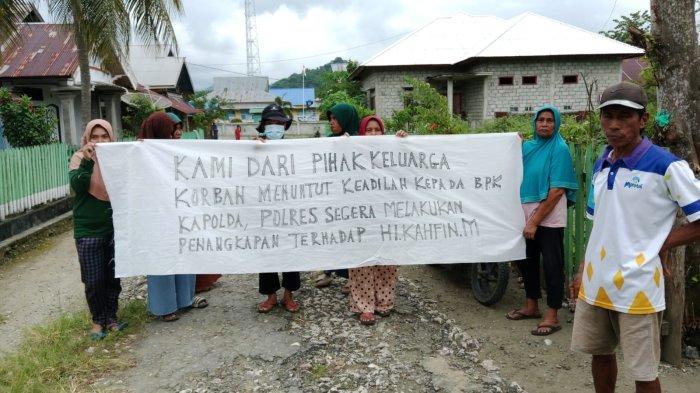 KAMI DARI PIHAK KELUARGA
KORBAN MENUNTUT KEADILAN KEPADA BPK
KAPOLDA, POLRES SEGERA MELAKUKAN
PENANGKAPAN TERHADAP HI.KAHFIN.M